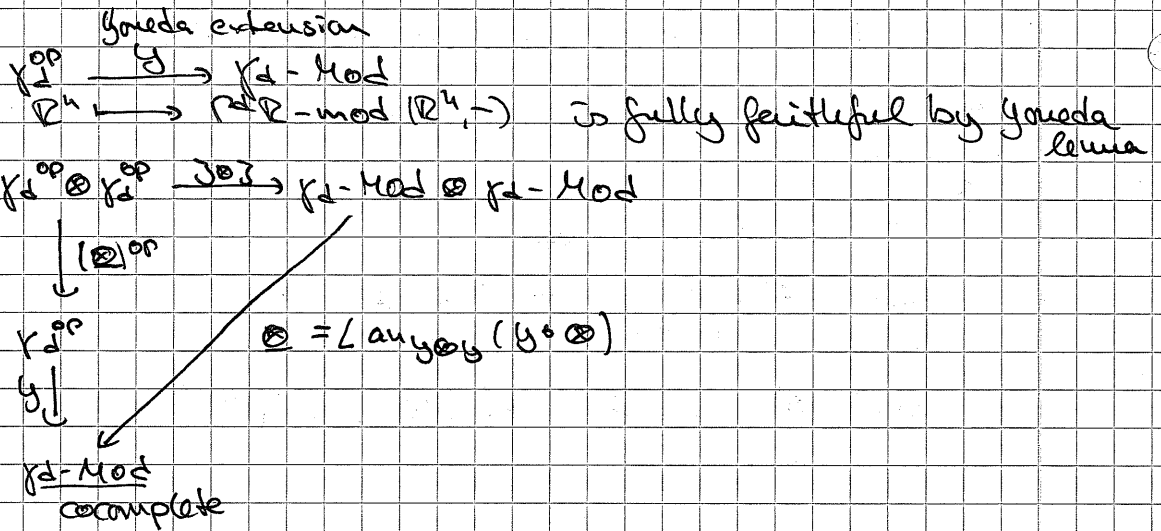 Yoneda extension
γd^op —y→ γd-Mod
R^n ⟼ Γ^d R-mod (R^n, -) is fully faithful by Yoneda
lemma
γd^op ⊗ γd^op —y⊗y→ γd-Mod ⊗ γd-Mod
(⊗)^op
γd^op
⊗ = Lan_{y⊗y} (y∘⊗)
y
γd-Mod
cocomplete